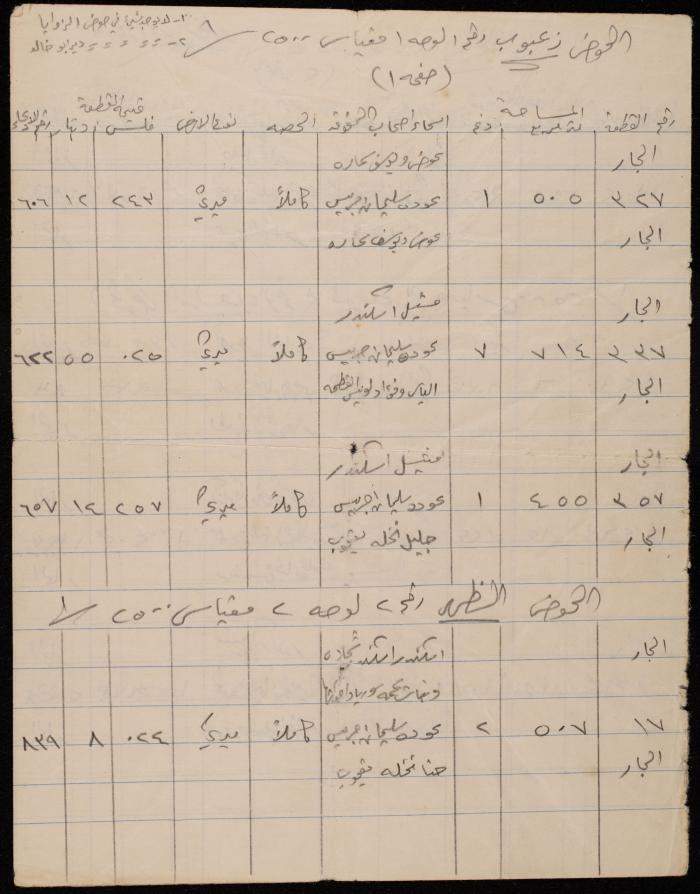 ١- لا يوجد شيئا في حوض الزوايا
٢- = = = = = دير ابو خالد
الحوض زعبوب رقم ١ لوحه ١ مقياس ٢٥٠٠ / ١
(صفحه ١)
رقم القطعة المساحة دنم متر مربع اسماء اصحاب الحقوق الحصه نوع الارض قيمة القطعة فلس دينار
الجار عوض ويوسف بحاره
٣٢٧ ٥٠٥ ١ عوده سليمان جريس كاملاً ميري ٢٤٣ ١٢ ٦٠٦
الجار عوض ويوسف بحاره
الجار ميشيل اسكندر
٣٣٧ ٧١٤ ٧ عوده سليمان جريس كاملاً ميري ٠٢٥ ٥٥ ٦٢٢
الجار الياس وفؤاد لويس
الجار ميشيل اسكندر
٣٥٧ ٤٥٥ ١ عوده سليمان جريس كاملاً ميري ٢٥٧ ١٤ ٦٥٧
الجار جليل نخله يعقوب
الحوض الظهر رقم ٢ لوحه ٢ مقياس ٢٥٠٠ / ١
الجار اسكندر اسكندر شحاده
١٧ ٥٠٧ ٢ عوده سليمان جريس كاملاً ميري ٠٢٤ ٨ ٨٣٩
الجار حنا نخله يعقوب